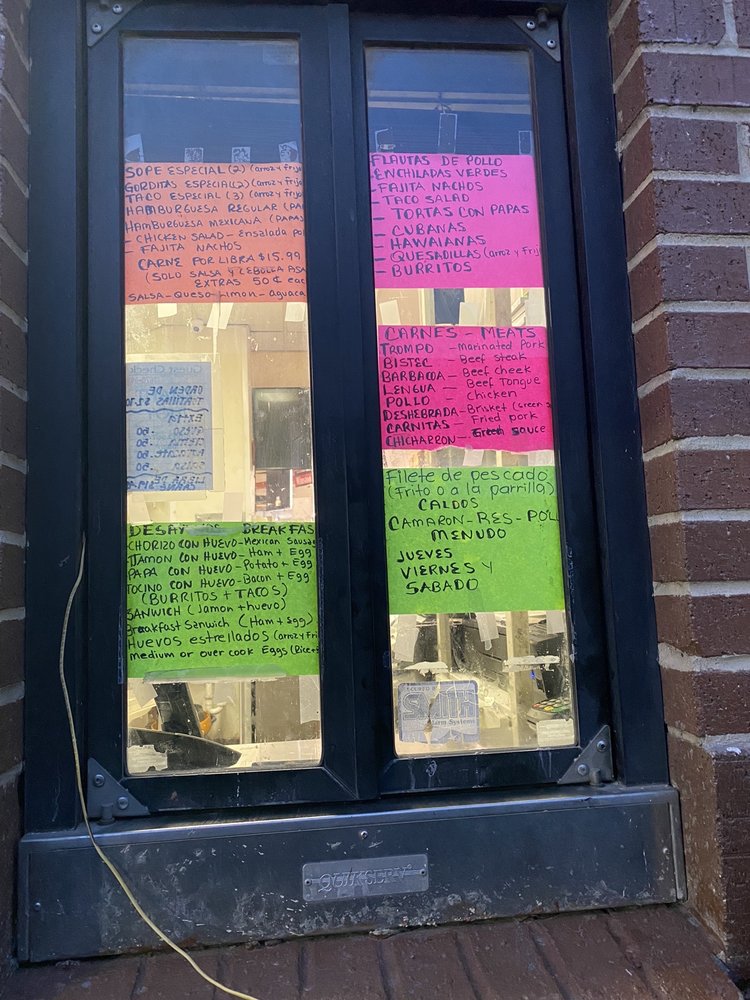 SOPE ESPECIAL (2) (arroz y frijo
GORDITAS ESPECIAL (2) (arroz y frijo
TACO ESPECIAL (3) (arroz y frijo
HAMBURGUESA REGULAR (PA
HAMBURGUESA MEXICANA (PAPAS
- CHICKEN SALAD - Ensalada pol
- FAJITA NACHOS
CARNE POR LIBRA $15.99
(SOLO SALSA Y CEBOLLA ASA
EXTRAS 50¢ eac
SALSA - Queso - Limon - aguaca
Guest Check
ORDEN DE
TORTILLAS
EXTRA
QUESO .50
CREMA .50
.50
SALSA .50
LIBRA DE
CARNE
DESAY OS BREAKFAS
CHORIZO CON HUEVO - Mexican Sausag
JAMON CON HUEVO - Ham + Egg
PAPA CON HUEVO - Potato + Egg
TOCINO CON HUEVO - Bacon + Egg
(BURRITOS + TACOS)
SANWICH (Jamon + huevo)
Breakfast Sanwich (Ham + Egg)
HUEVOS estrellados (arroz y Fri
medium or over cook Eggs (Rice +
FLAUTAS DE POLLO
ENCHILADAS VERDES
- FAJITA NACHOS
- TACO SALAD
- TORTAS CON PAPAS
- CUBANAS
- HAWAIANAS
- QUESADILLAS (arroz y Frij
- BURRITOS
CARNES - MEATS
TROMPO - Marinated Pork
BISTEC - Beef steak
BARBACOA - Beef cheek
LENGUA - Beef Tongue
POLLO - Chicken
DESHEBRADA - Brisket (Green S
CARNITAS - Fried pork
CHICHARRON - Green sauce
Filete de pescado
(Frito o a la parrilla)
CALDOS
CAMARON - RES - POL
MENUDO
JUEVES
VIERNES Y
SABADO
Alarm Systems
QUIKSERV